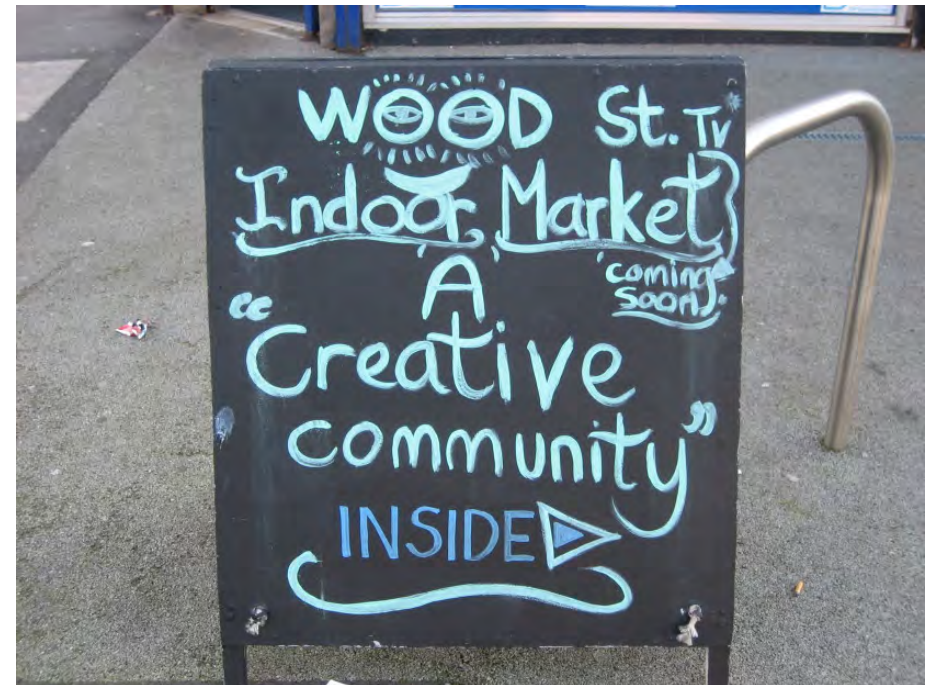 WOOD St. Tv
Indoor Market
'coming
soon'
A
"Creative
community"
INSIDE